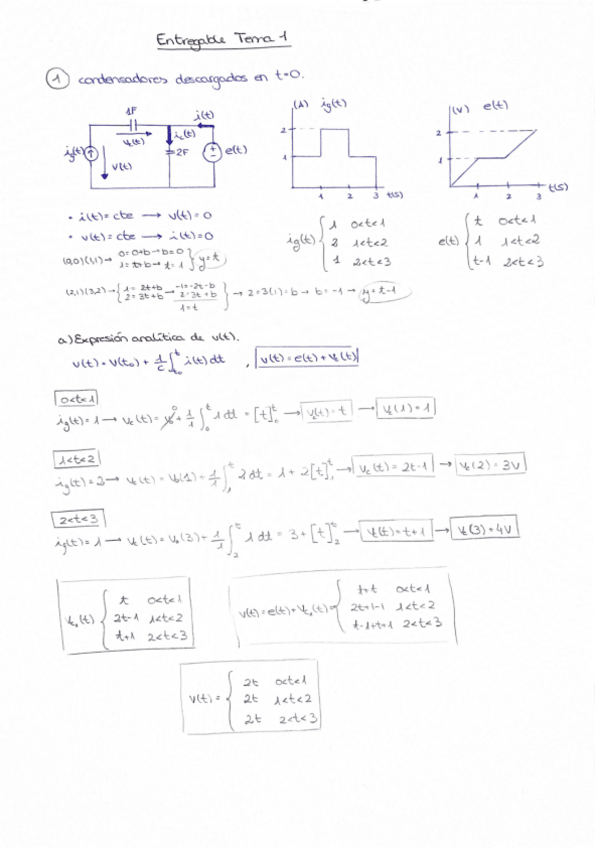 Entregable Tema 1
1 condensadores descargados en t=0.
1F
i(t)
Vc(t)
ic(t)
ig(t)
V(t)
2F
e(t)
(A) ig(t)
2
1
1 2 3 t(S)
(V) e(t)
2
1
1 2 3 t(S)
• i(t)=cte → v(t)=0
• v(t)=cte → i(t)=0
(0,0)(1,1) → 0=0+b→b=0 } y=t
ig(t) { 1 0<t<1
2 1<t<2
1 2<t<3
e(t) { t 0<t<1
1 1<t<2
t-1 2<t<3
(2,1)(3,2) → { 1=2t+b → -1=-2t-b
2=3t+b → 2=3t+b
1=t
→ 2=3(1)+b → b=-1 → y=t-1
a) Expresión analítica de v(t).
v(t)=v(t₀)+ 1/C ∫ₜ₀ᵗ i(t)dt , v(t)=e(t)+Vc(t)
0<t<1
ig(t)=1 → Vc(t)= + 1/1 ∫₀ᵗ 1dt = [t]₀ᵗ → Vc(t)=t → Vc(1)=1
1<t<2
ig(t)=2 → Vc(t)= (1)+ 1/1 ∫₁ᵗ 2dt = 1+2[t]₁ᵗ → Vc(t)=2t-1 → Vc(2)=3V
2<t<3
ig(t)=1 → Vc(t)= (3)+ 1/1 ∫₂ᵗ 1dt = 3+[t]₂ᵗ → Vc(t)=t+1 → Vc(3)=4V
(t) { t 0<t<1
2t-1 1<t<2
t+1 2<t<3
v(t)=e(t)+ (t)= { t+t 0<t<1
2t+1-1 1<t<2
t-1+t+1 2<t<3
v(t)= { 2t 0<t<1
2t 1<t<2
2t 2<t<3